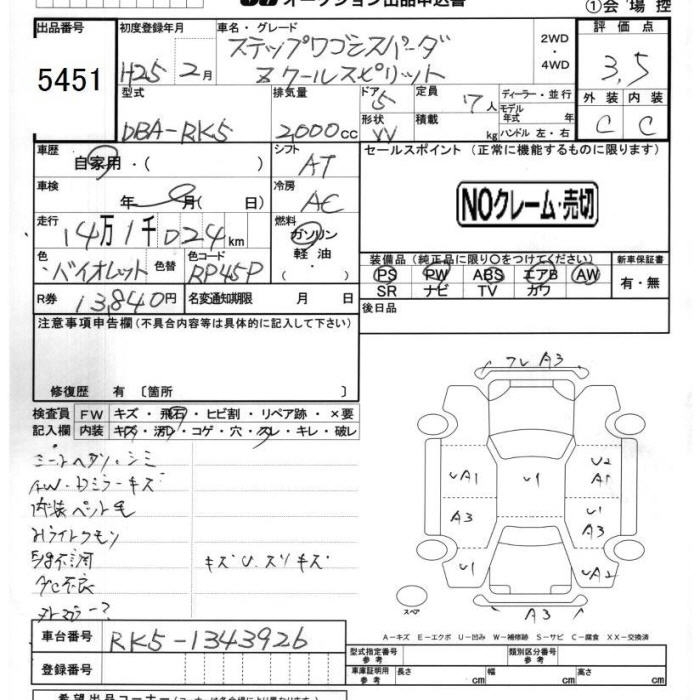 オークション出品申込書
①会場控
出品番号 初度登録年月 車名・グレード 評価点
5451 H25 2月 ステップワゴンスパーダ 2WD・4WD 3.5
Zクールスピリット
型式 排気量 ドア 5 定員 7人 ディーラー・並行 外装 内装
モデル年式 年
DBA-RK5 2000cc 形状 VV 積載 kg ハンドル 左・右 C C
車歴 自家用・( ) シフト AT セールスポイント (正常に機能するものに限ります)
車検 年 月( 日) 冷房 AC NOクレーム・売切
走行 14万1千024km 燃料 ガソリン
軽油
・
色 バイオレット 色替 色コード RP45P 装備品 (純正品に限り○をつけてください) 新車保証書
PS PW ABS エアB AW 有・無
SR ナビ TV カワ
R券 13,840円 名変通知期限 月 日 後日品
注意事項申告欄 (不具合内容等は具体的に記入して下さい)
修復歴 有 〔箇所 〕
検査員 FW キズ・飛石・ヒビ割・リペア跡・×要
記入欄 内装 キズ・汚レ・コゲ・穴・スレ・キレ・破レ
シートヘタリ・シミ
AW・Dミラーキズ
内装ペット毛
Hライトクモリ
キズU.スリキズ
フレ A3
UA1 U1 U2
A1
A3 U1
A3
U1 UA2
A3
スペア
A-キズ E-エクボ U-凹み W-補修跡 S-サビ C-腐食 XX-交換済
車台番号 RK5-1343926
型式指定番号 参考 類別区分番号 参考
登録番号 車庫証明用 参考 長さ cm 幅 cm 高さ cm
希望出品コーナー